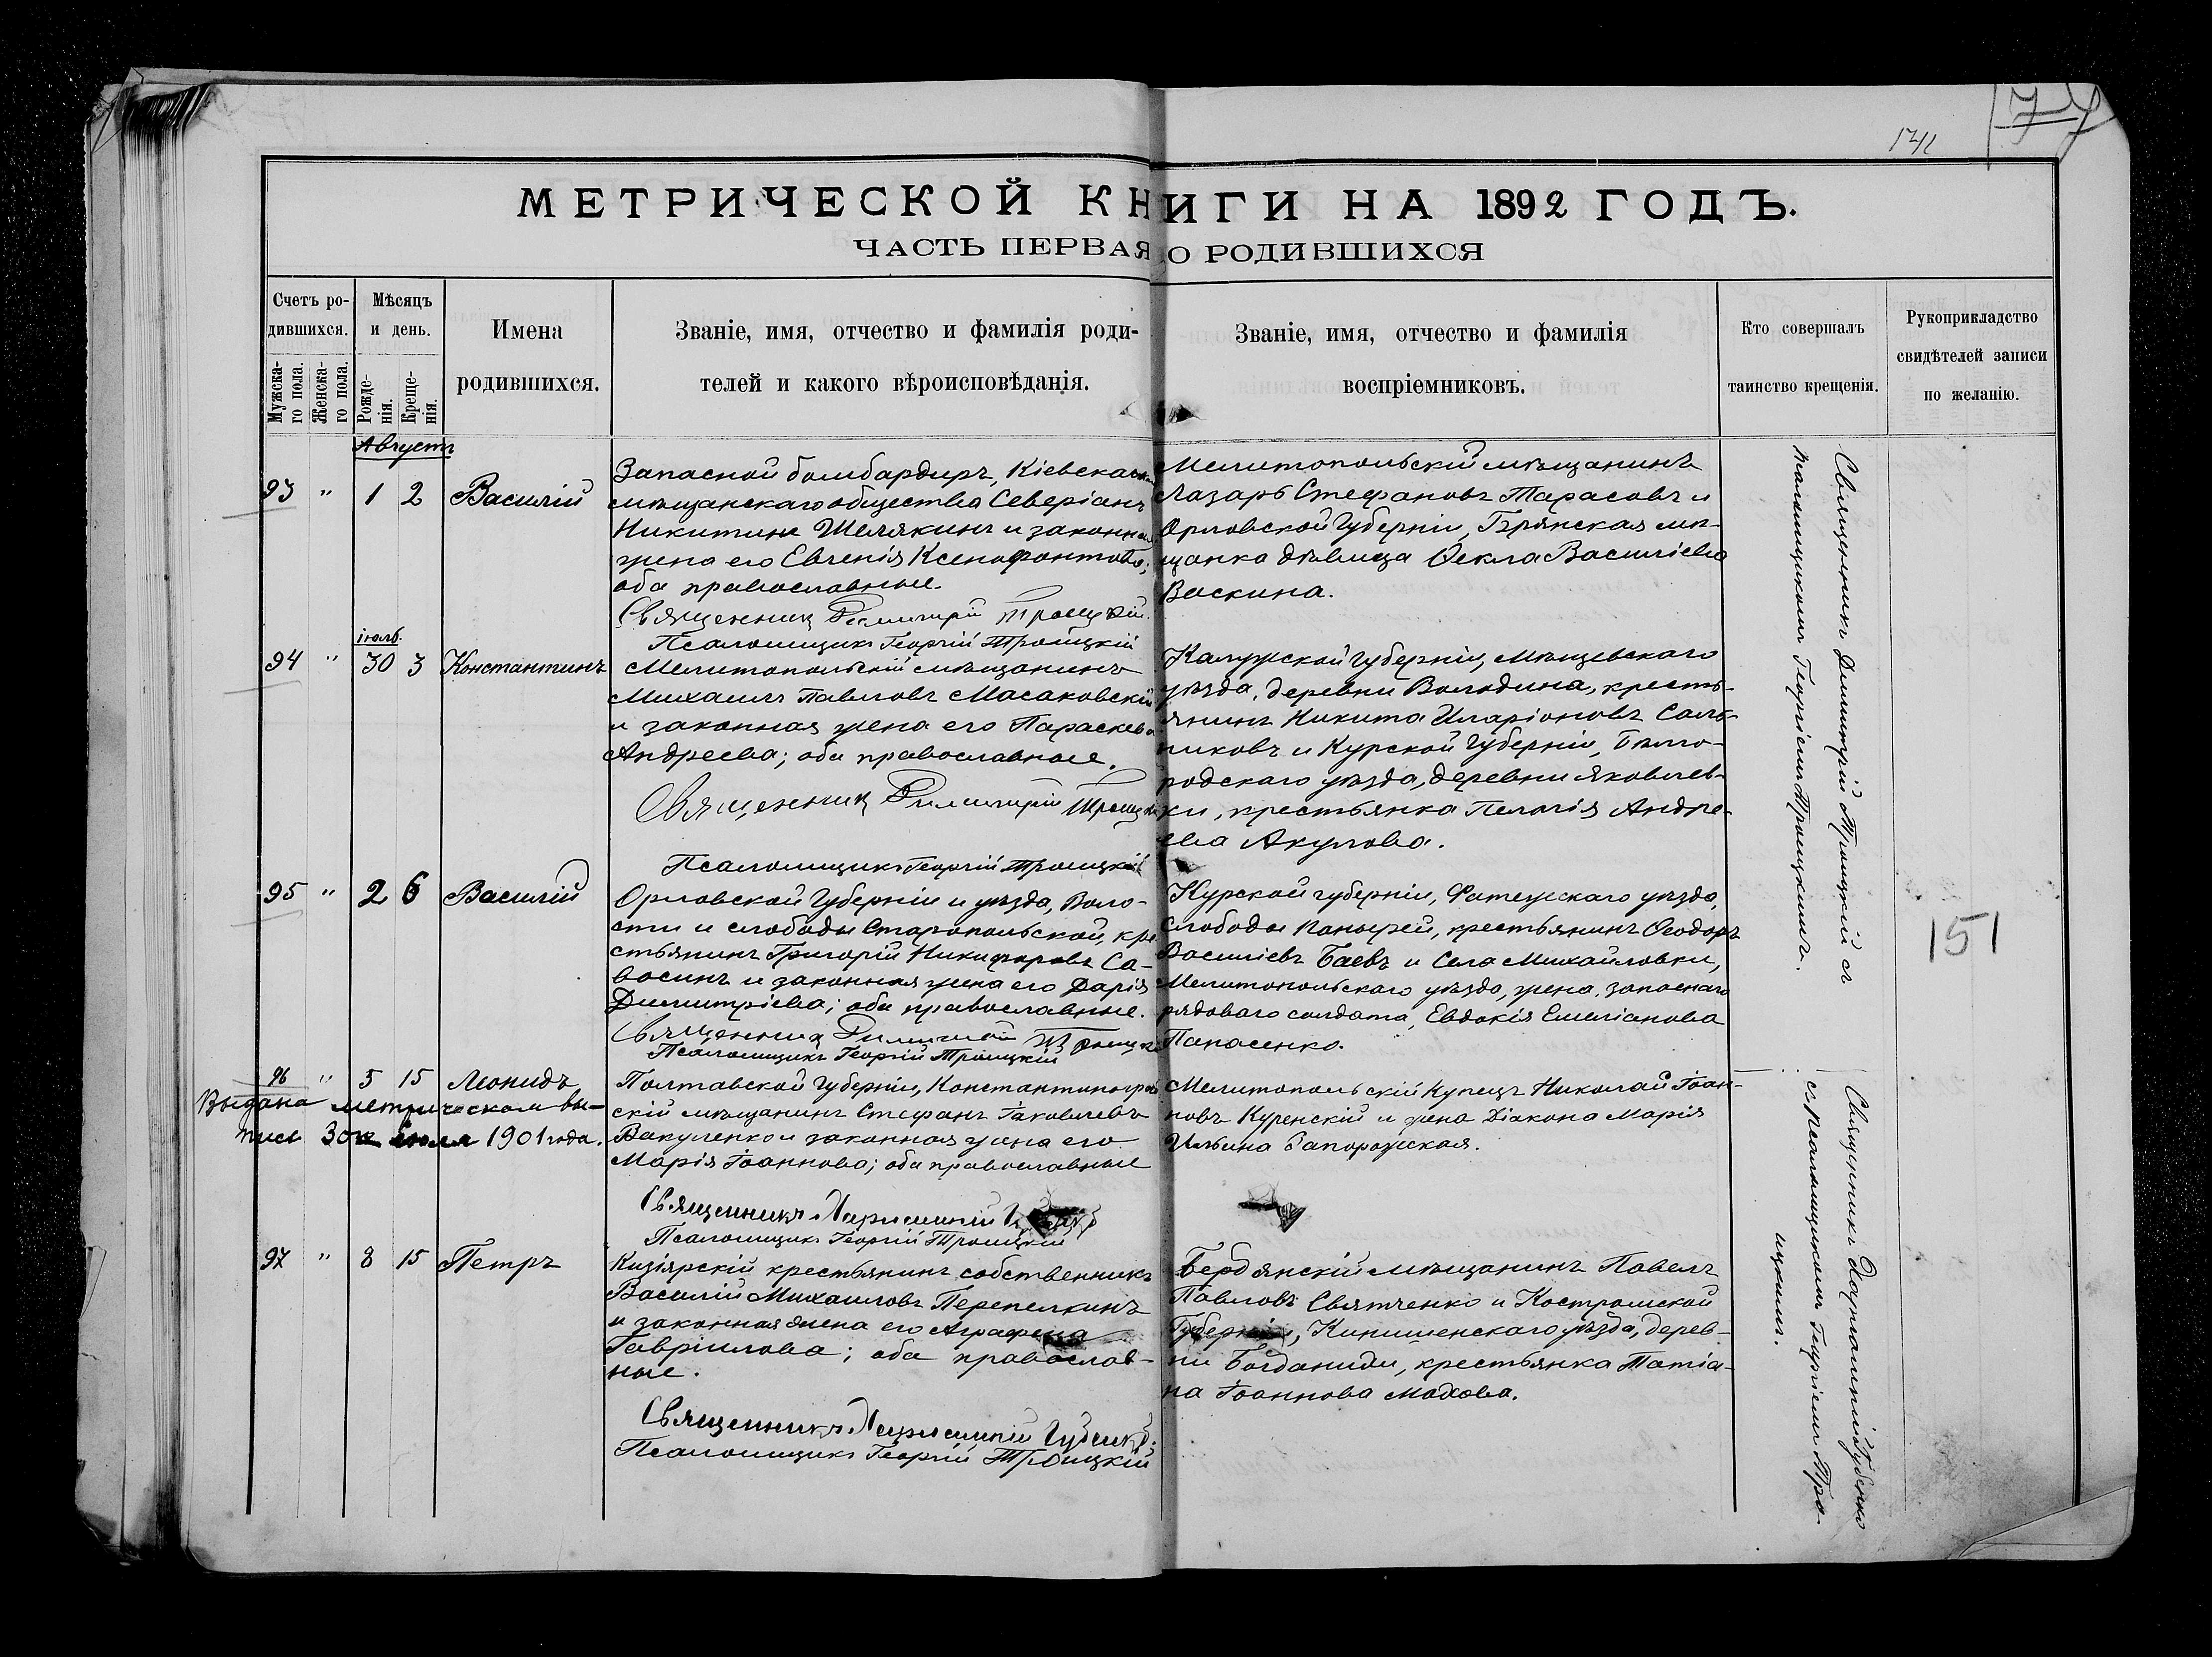 174
77
МЕТРИЧЕСКОЙ КНИГИ НА 1892 ГОДЪ.
ЧАСТЬ ПЕРВАЯ О РОДИВШИХСЯ
Счетъ ро-
дившихся.
Мужска-
го пола.
Женска-
го пола.
Мѣсяцъ
и день.
Рожде-
нія.
Креще-
нія.
Имена
родившихся.
Званіе, имя, отчество и фамилія роди-
телей и какого вѣроисповѣданія.
Званіе, имя, отчество и фамилія
воспріемниковъ.
Кто совершалъ
таинство крещенія.
Рукоприкладство
свидѣтелей записи
по желанію.
Августъ
93 " 1 2 Василій
Запасной бомбардиръ, Кіевскаго
мѣщанскаго общества Северіанъ
Никитинъ Шелякинъ и законная
жена его Евгенія Ксенофонтова;
оба православные.
Священник Димитрий Троицкий.
Псаломщикъ Георгій Троицкій
Мелитопольскій мѣщанинъ
Лазарь Стефановъ Тарасовъ и
Орловской Губерніи, Брянская мѣ-
щанка дѣвица Ѳекла Василіева
Васкина.
іюль.
94 " 30 3 Константинъ
Мелитопольскій мѣщанинъ
Михаилъ Павловъ Масаковскій
и законная жена его Параскева
Андреева; оба православные.
Священник Димитрий Троицкий
Псаломщикъ Георгій Троицкій
Калужской Губерніи, Мѣщевскаго
уѣзда, деревни Володина, кресть-
янинъ Никита Иларіоновъ Саль-
никовъ и Курской Губерніи, Бѣлго-
родскаго уѣзда, деревни Яковлев-
ки, крестьянка Пелагія Андре-
ева Акулова.
95 " 2 6 Василій
Орловской Губерніи и уѣзда, Воло-
сти и слободы Старопольской, кре-
стьянинъ Григорій Никифоровъ Са-
восинъ и законная жена его Дарія
Димитріева; оба православные.
Священник Димитрий Троицкий
Псаломщикъ Георгій Троицкій
Курской губерніи, Фатежскаго уѣзда,
Слободы Понырей, крестьянинъ Ѳеодоръ
Василіевъ Баевъ и Села Михайловки,
Мелитопольскаго уѣзда, жена запаснаго
рядоваго солдата, Евдокія Емеліанова
Панасенко.
151
96 " 5 15 Леонидъ
Выдана метрическом вы-
писи 30го июля 1901 года.
Полтавской Губерніи, Константиноград-
скій мѣщанинъ Стефанъ Іаковлевъ
Вакуленко и законная жена его
Марія Іоаннова; оба православные
Священникъ Харлампій
Псаломщикъ Георгій Троицкій
Мелитопольскій Купецъ Николай Іоан-
новъ Куренскій и жена Діакона Марія
Ильина Запорожская.
97 " 8 15 Петръ
Кизіярскій крестьянинъ собственникъ
Василій Михаиловъ Перепелкинъ
и законная жена его Аграфена
Гавріилова; оба православ-
ные.
Священникъ Харлампій Губенко
Псаломщикъ Георгій Троицкій
Бердянскій мѣщанинъ Павелъ
Павловъ Святченко и Костромской
Губерніи, Кинешенскаго уѣзда, дерев-
ни Богданиди, крестьянка Татіа-
на Іоаннова Махова.
Священникъ Димитрій Троицкій съ
псаломщикомъ Георгіемъ Троицкимъ.
Священникъ Харлампій Губенко
съ псаломщикомъ Георгіемъ Тро-
ицкимъ.